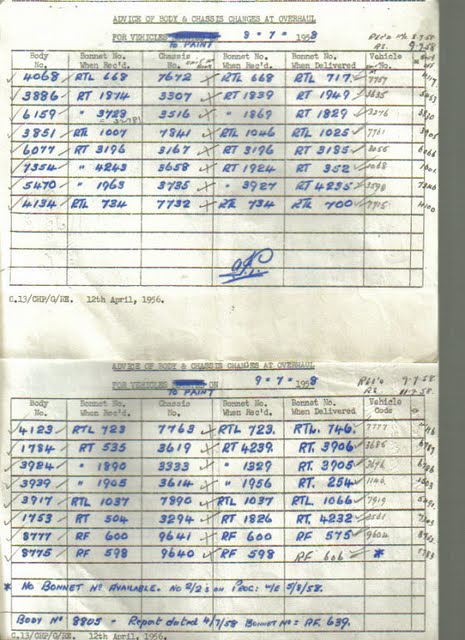 ADVICE OF BODY & CHASSIS CHANGES AT OVERHAUL
FOR VEHICLES 8 - 7 - 1958
TO PAINT
Body No. Bonnet No. When Rec'd. Chassis No. Bonnet No. When Rec'd. Bonnet No. When Delivered Vehicle
4068 RTL 668 7672 RTL 668 RTL 717
3886 RT 1874 3307 RT 1839 RT 1949
6159 " 3723 3516 " 1869 RT 1829
3851 RTL 1007 7841 RTL 1046 RTL 1025 7761
6077 RT 3196 3167 RT 3196 RT 3185
7354 " 4243 3658 RT 1924 RT 352
5470 " 1963 3735 " 3927 RT 4235
4134 RTL 734 7732 RTL 734 RTL 700
C.13/CHP/G/RE. 12th April, 1956.
ADVICE OF BODY & CHASSIS CHANGES AT OVERHAUL
FOR VEHICLES ON 9 - 7 - 1958
TO PAINT
Body No. Bonnet No. When Rec'd. Chassis No. Bonnet No. When Rec'd. Bonnet No. When Delivered Vehicle Code
4123 RTL 723 7763 RTL 723. RTL. 746. 7777
1784 RT 535 3619 RT 4239. RT. 3906
3924 " 1890 3333 " 1329 RT. 3905
3939 " 1905 3614 " 1956 RT. 254
3917 RTL 1037 7890 RTL 1037 RTL 1066 7919
1753 RT 504 3294 RT 1826 RT. 4232
8777 RF 600 9641 RF 600 RF 575 9604
8775 RF 598 9640 RF 598 RF 606 *
* NO BONNET No AVAILABLE. NO 2/2's ON PROC: W/E 5/8/58.
BODY No 8805 - Report dated 4/7/58 BONNET No: RF 639.
C.13/CHP/G/RE. 12th April, 1956.